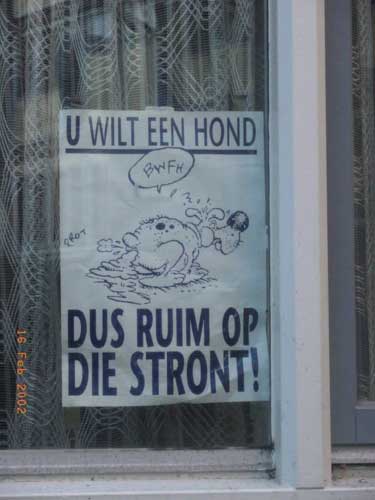 U WILT EEN HOND
BWFH
PROT
DUS RUIM OP
DIE STRONT!
16 Feb 2002